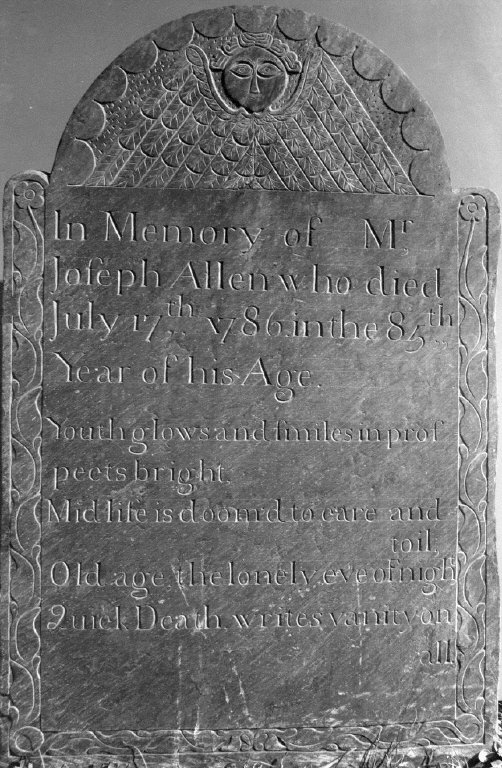 In Memory of Mr
Joſeph Allen who died
July 17th 1786. in the 85th
Year of his Age.
Youth glows and ſmiles in proſ
pects bright.
Mid life is doom'd to care and
toil,
Old age, the lonely eve of nigh
Quick Death, writes vanity on
all